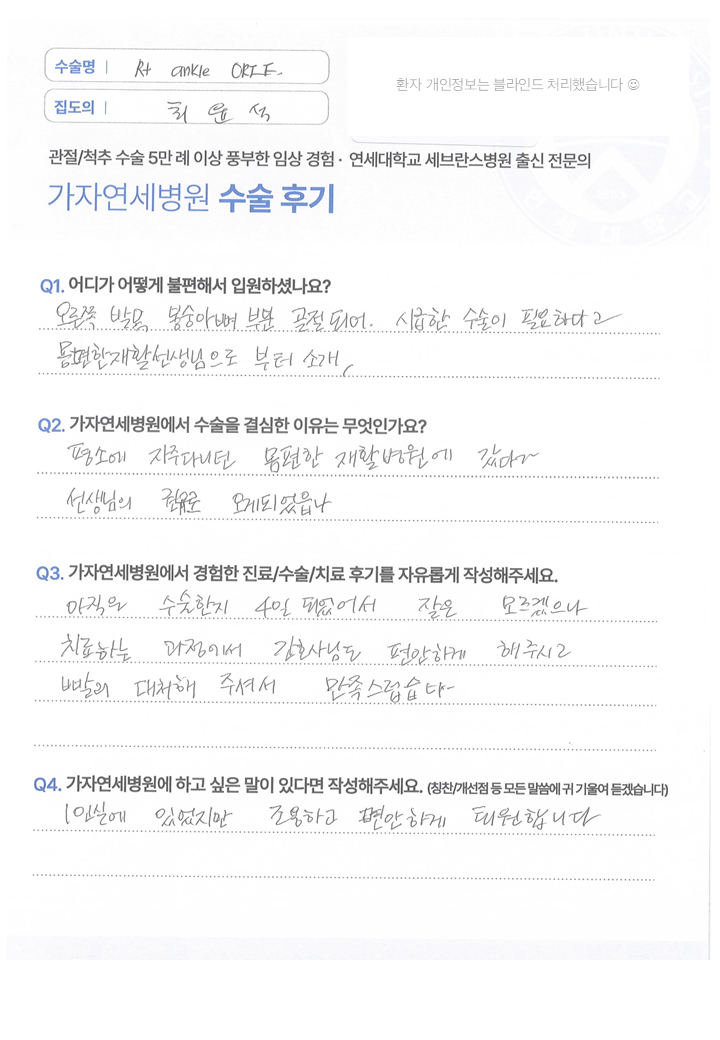 수술명 | Rt ankle ORIF.
환자 개인정보는 블라인드 처리했습니다 ☺
집도의 | 최윤석
관절/척추 수술 5만 례 이상 풍부한 임상 경험 · 연세대학교 세브란스병원 출신 전문의
가자연세병원 수술 후기
Q1. 어디가 어떻게 불편해서 입원하셨나요?
오른쪽 발목 봉숭아뼈 부분 골절되어. 시급한 수술이 필요하다고
몸편한재활선생님으로 부터 소개,
Q2. 가자연세병원에서 수술을 결심한 이유는 무엇인가요?
평소에 자주다니던 몸편한 재활병원에 갔다가
선생님의 권유로 오게되었읍니다
Q3. 가자연세병원에서 경험한 진료/수술/치료 후기를 자유롭게 작성해주세요.
아직은 수술한지 4일 되었어서 잘은 모르겠으나
치료하는 과정에서 간호사님도 편안하게 해주시고
빠르 대처해 주셔서 만족스럽습니다-
Q4. 가자연세병원에 하고 싶은 말이 있다면 작성해주세요. (칭찬/개선점 등 모든 말씀에 귀 기울여 듣겠습니다)
1인실에 있었지만 조용하고 편안하게 퇴원합니다